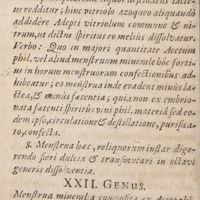 tur redditur; hinc vitriolo azoquo aliquando
addidêre Adepti vitriolum commune & ni-
trum, ut dictus spiritus eo melius dissolvatur.
Verbo: Quo in majori quantitate Acetum
phil. vel aliud menstruum minerale hôc forti-
us in horum menstruorum confectionibus ad-
hibeatur; eo menstrua inde evadent minus la-
ctea, & minus fætentia; quia non ex embrio-
nata fætenti spiritûs vini phil. materiâ sed eo-
dem ipso, circulatione & destillatione, purifica-
to, confecta.
8. Menstrua hæc, reliquorum instar dige-
rendo fieri dulcia & transmutari in octavi
generis dissolventia.
XXII. GENUS.
Menstrua mineralia composita ex